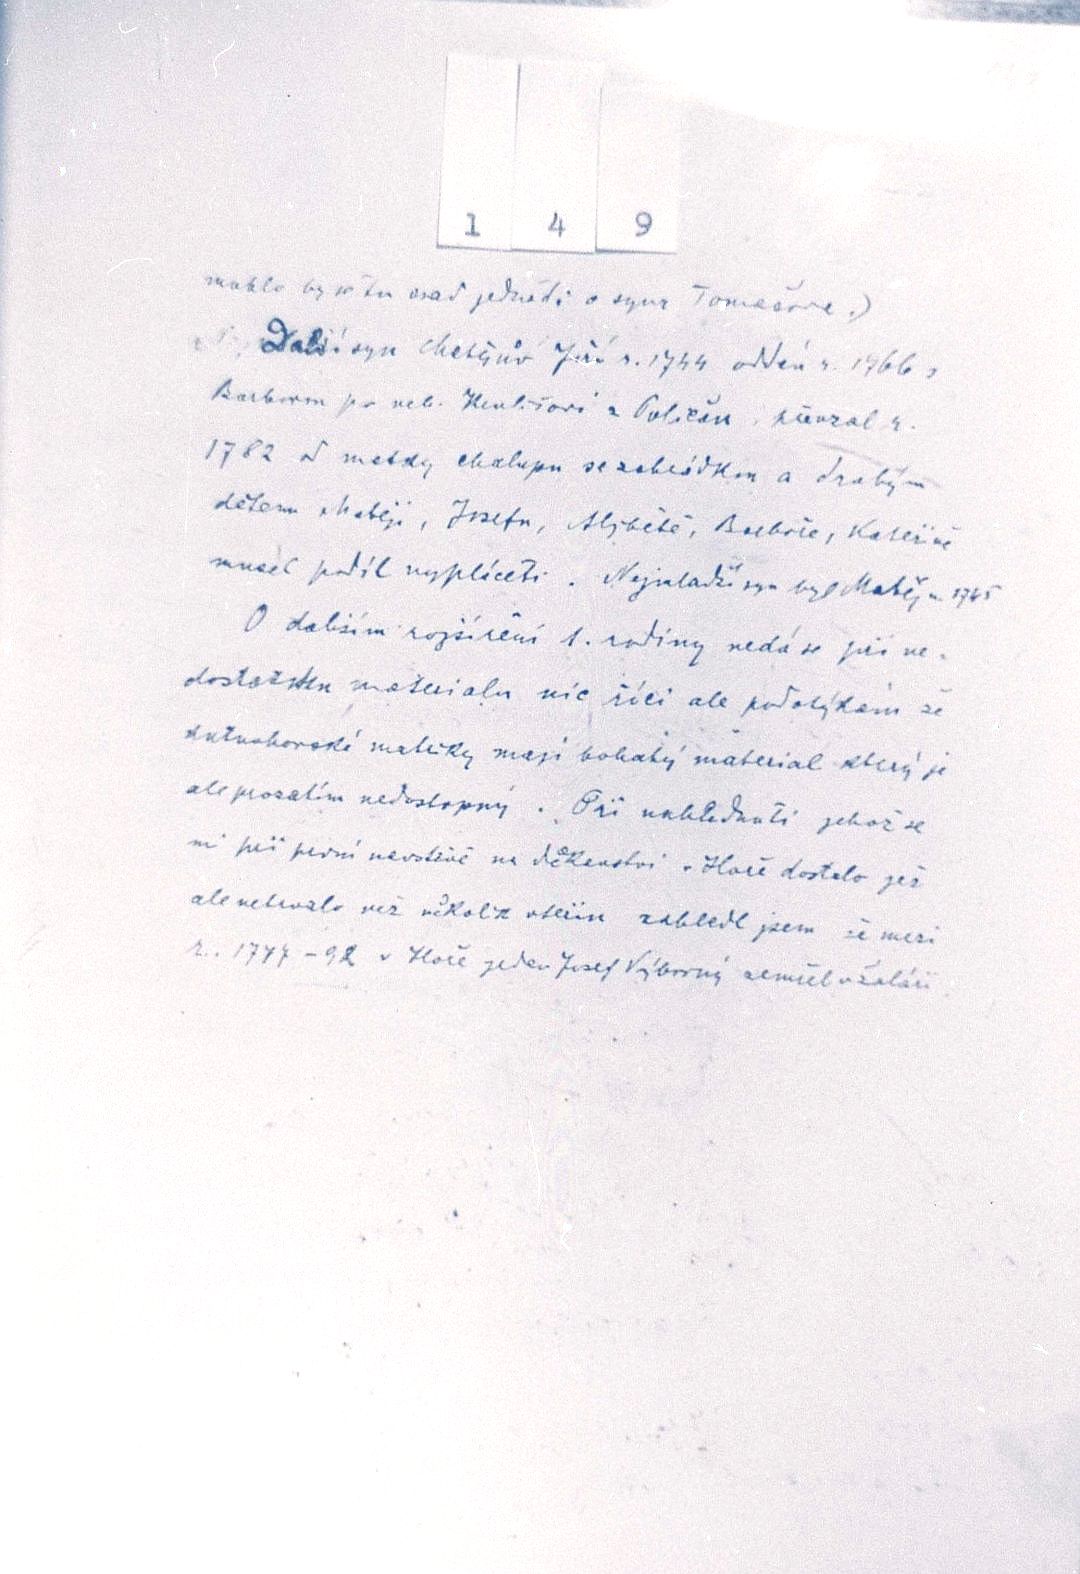 1 4 9
mohlo by se tu snad jednati o syna Tomášova.)
Další syn Matějův Jiří n. 1744 oddán r. 1766 s
Barborou po neb. Havlišovi z Poličan, převzal r.
1782 od matky chalupu se zahrádkou a drahým
dětem Matěji, Josefu, Alžbětě, Barboře, Kateřině
musel podíl vypláceti. Nejmladší syn byl Matěj n. 1745
O dalším rozšíření 1. rodiny nedá se při ne-
dostatku materialu nic říci ale podotýkám že
kutnohorské matriky mají bohatý material který je
ale prozatím nedostupný. Při nahlédnutí jehož se
mi při první návštěvě na děkanství v Hoře dostalo jež
ale netrvalo než několik vteřin zahlédl jsem že mezi
r. 1777-92 v Hoře jeden Josef Výborný zemřel v žaláři